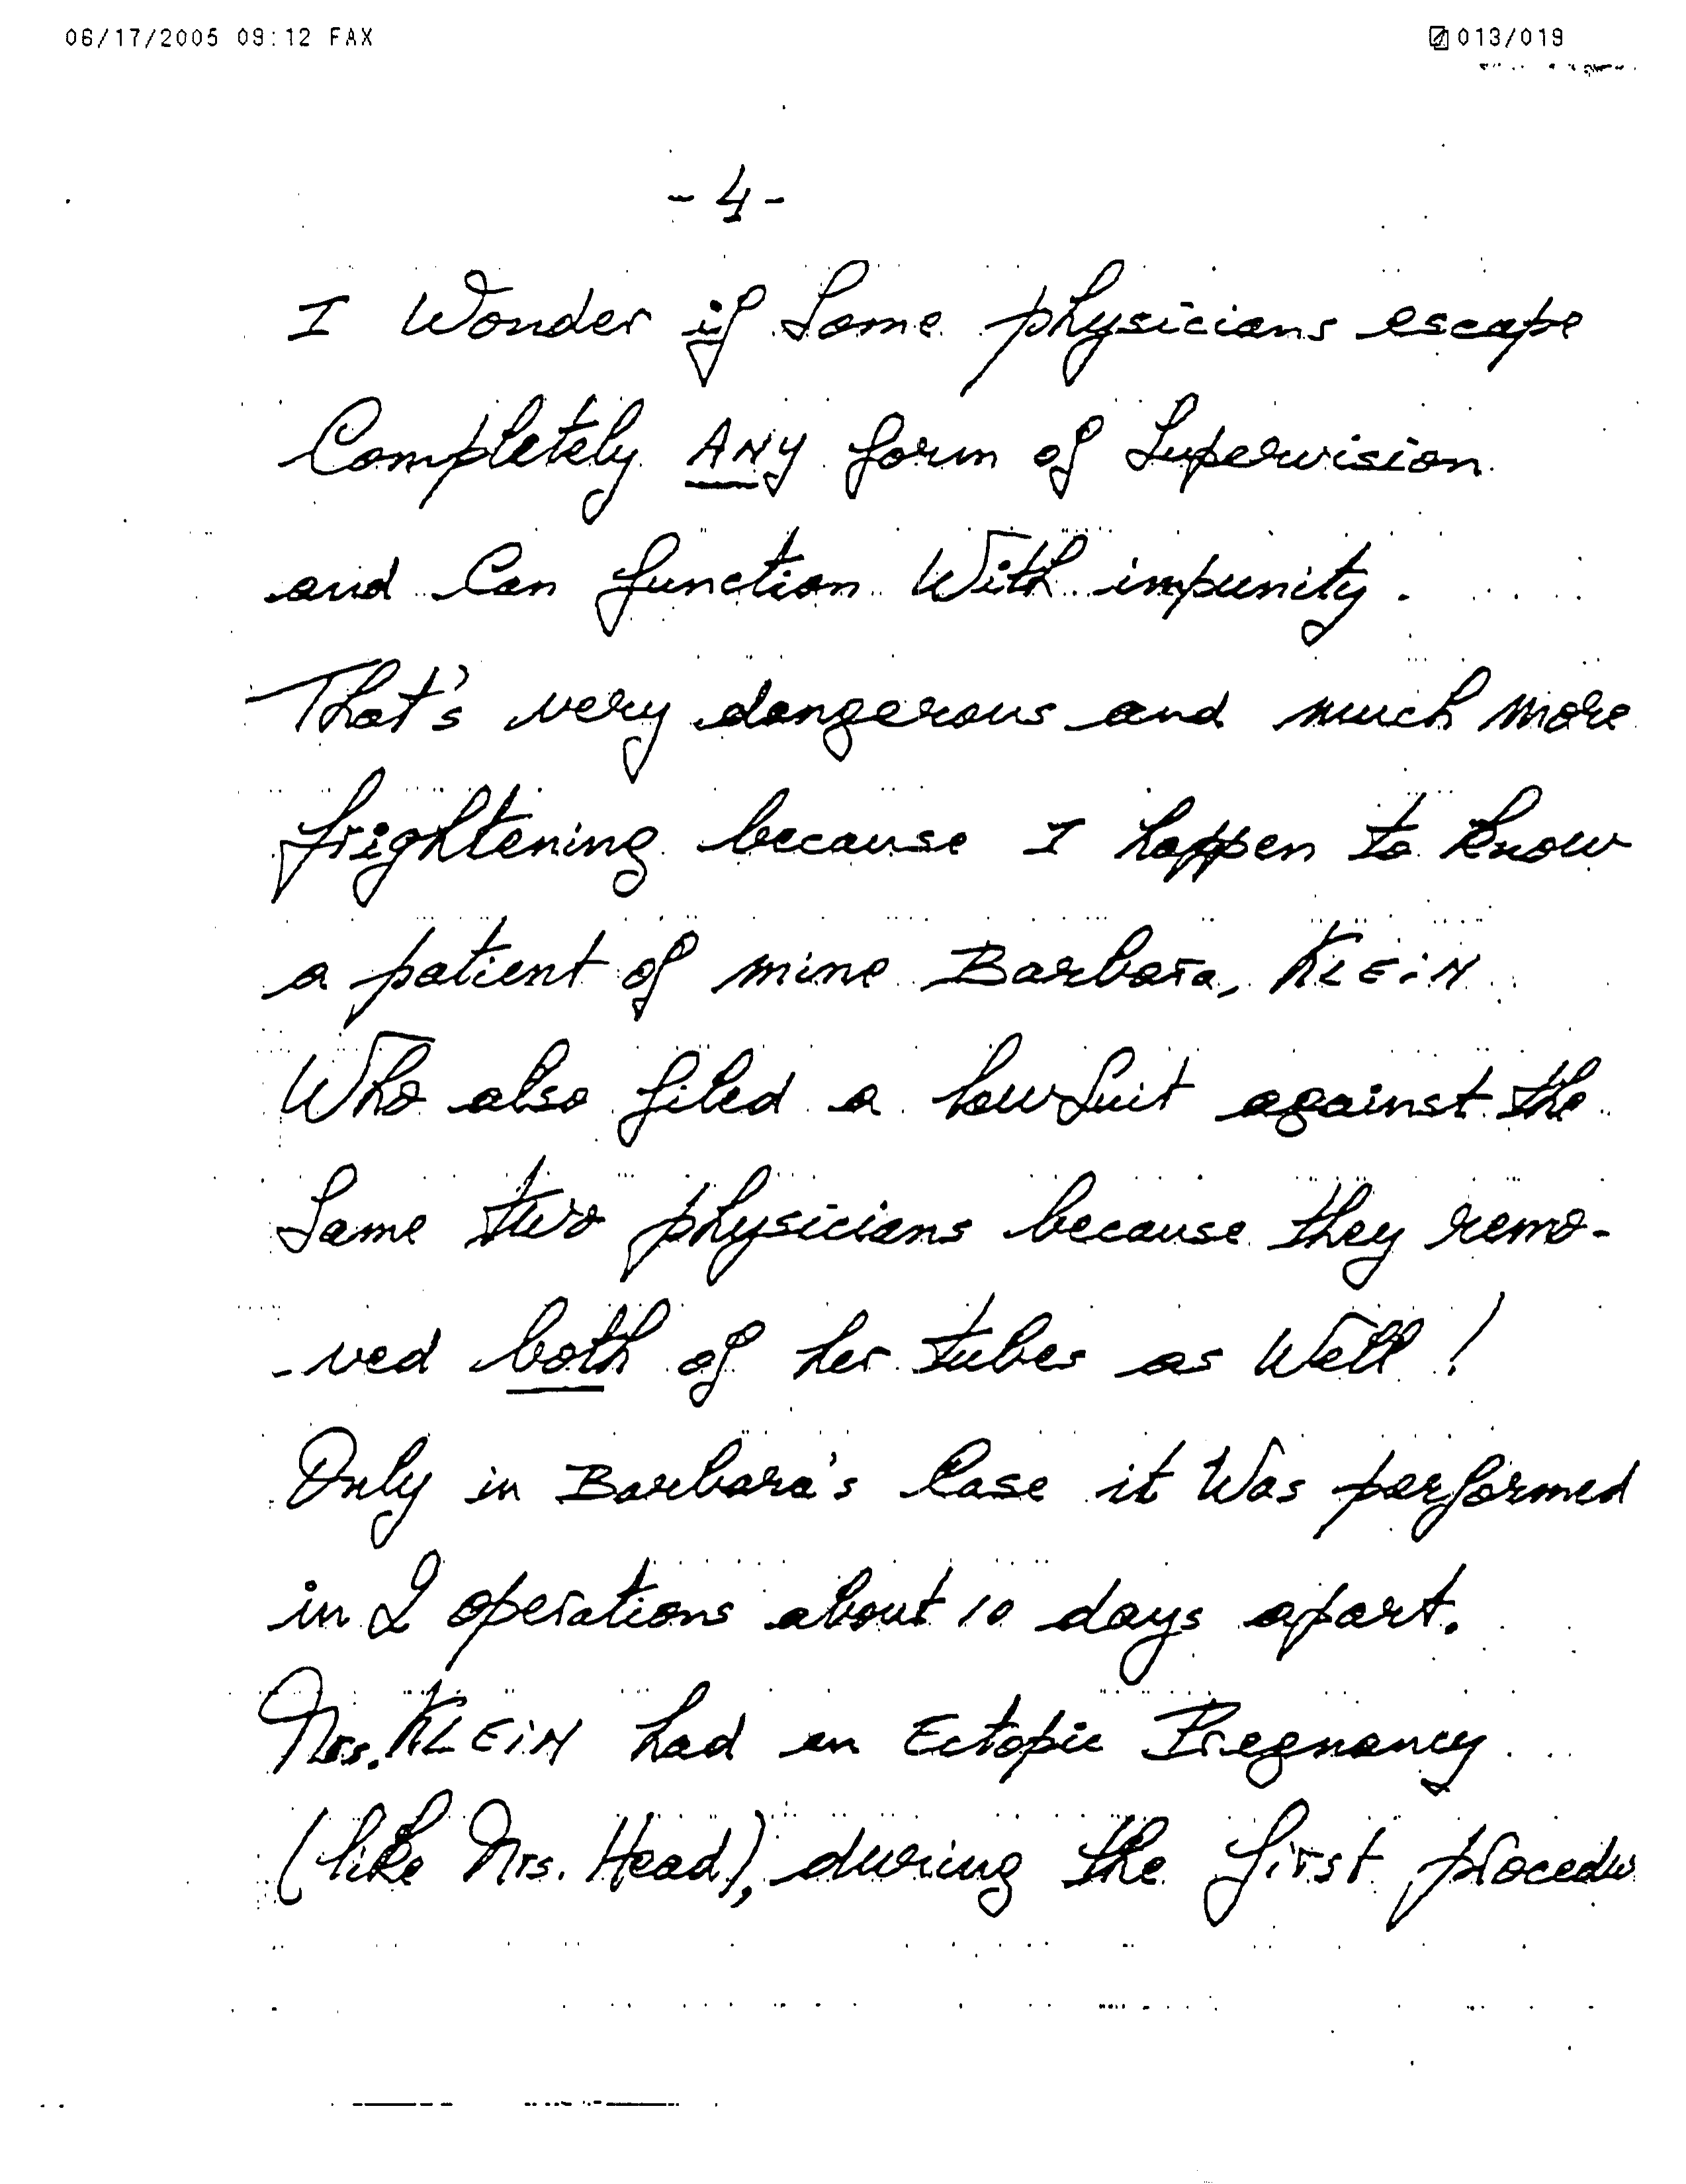 06/17/2005 09:12 FAX 013/019
- 4 -
I Wonder if Some physicians escape
Completely ANY form of Supervision
and Can function With impunity.
That's very dangerous and much more
frightening because I happen to know
a patient of mine Barbara, KLEiN
Who also filed a lawSuit against the
Same two physicians because they remo-
-ved both of her tubes as Well!
Only in Barbara's Case it Was performed
in 2 operations about 10 days apart.
Mrs. KLEiN had an Ectopic Pregnancy
(like Mrs. Head), during the first procedu